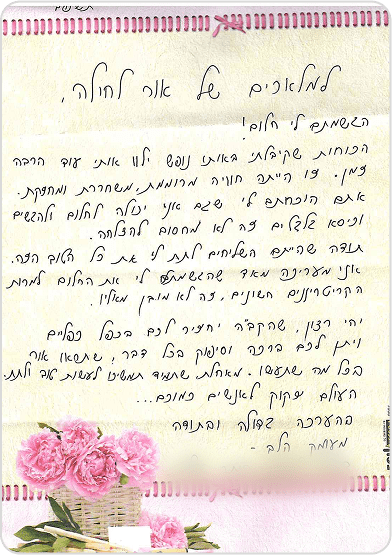 למלאכים של אור לחולה,
הגשמתם לי חלום!
הכוחות שקיבלתי באותו נופש ילוו אותי עוד הרבה
זמן. זו הייתה חוויה מרוממת, משחררת ומחזקת.
אתם הוכחתם לי שגם אני יכולה לחלום ולהגשים
וכיסא גלגלים זה לא מחסום להצלחה.
תודה שהייתם השליחים לתת לי את כל הטוב הזה.
אני מעריכה מאד שהגשמתם לי את החלום למרות
הקריטריונים השונים, זה לא מובן מאליו.
יהי רצון, שהקב"ה יחזיר לכם בכפל כפליים
ויתן לכם ברכה וסיפוק בכל דבר, שתשאו אור
בכל מה שתעשו. מאחלת שתמיד תמשיכו לעשות טוב ולתת.
העולם זקוק לאנשים כמוכם...
בהערכה גדולה ובתודה
מעומק הלב -